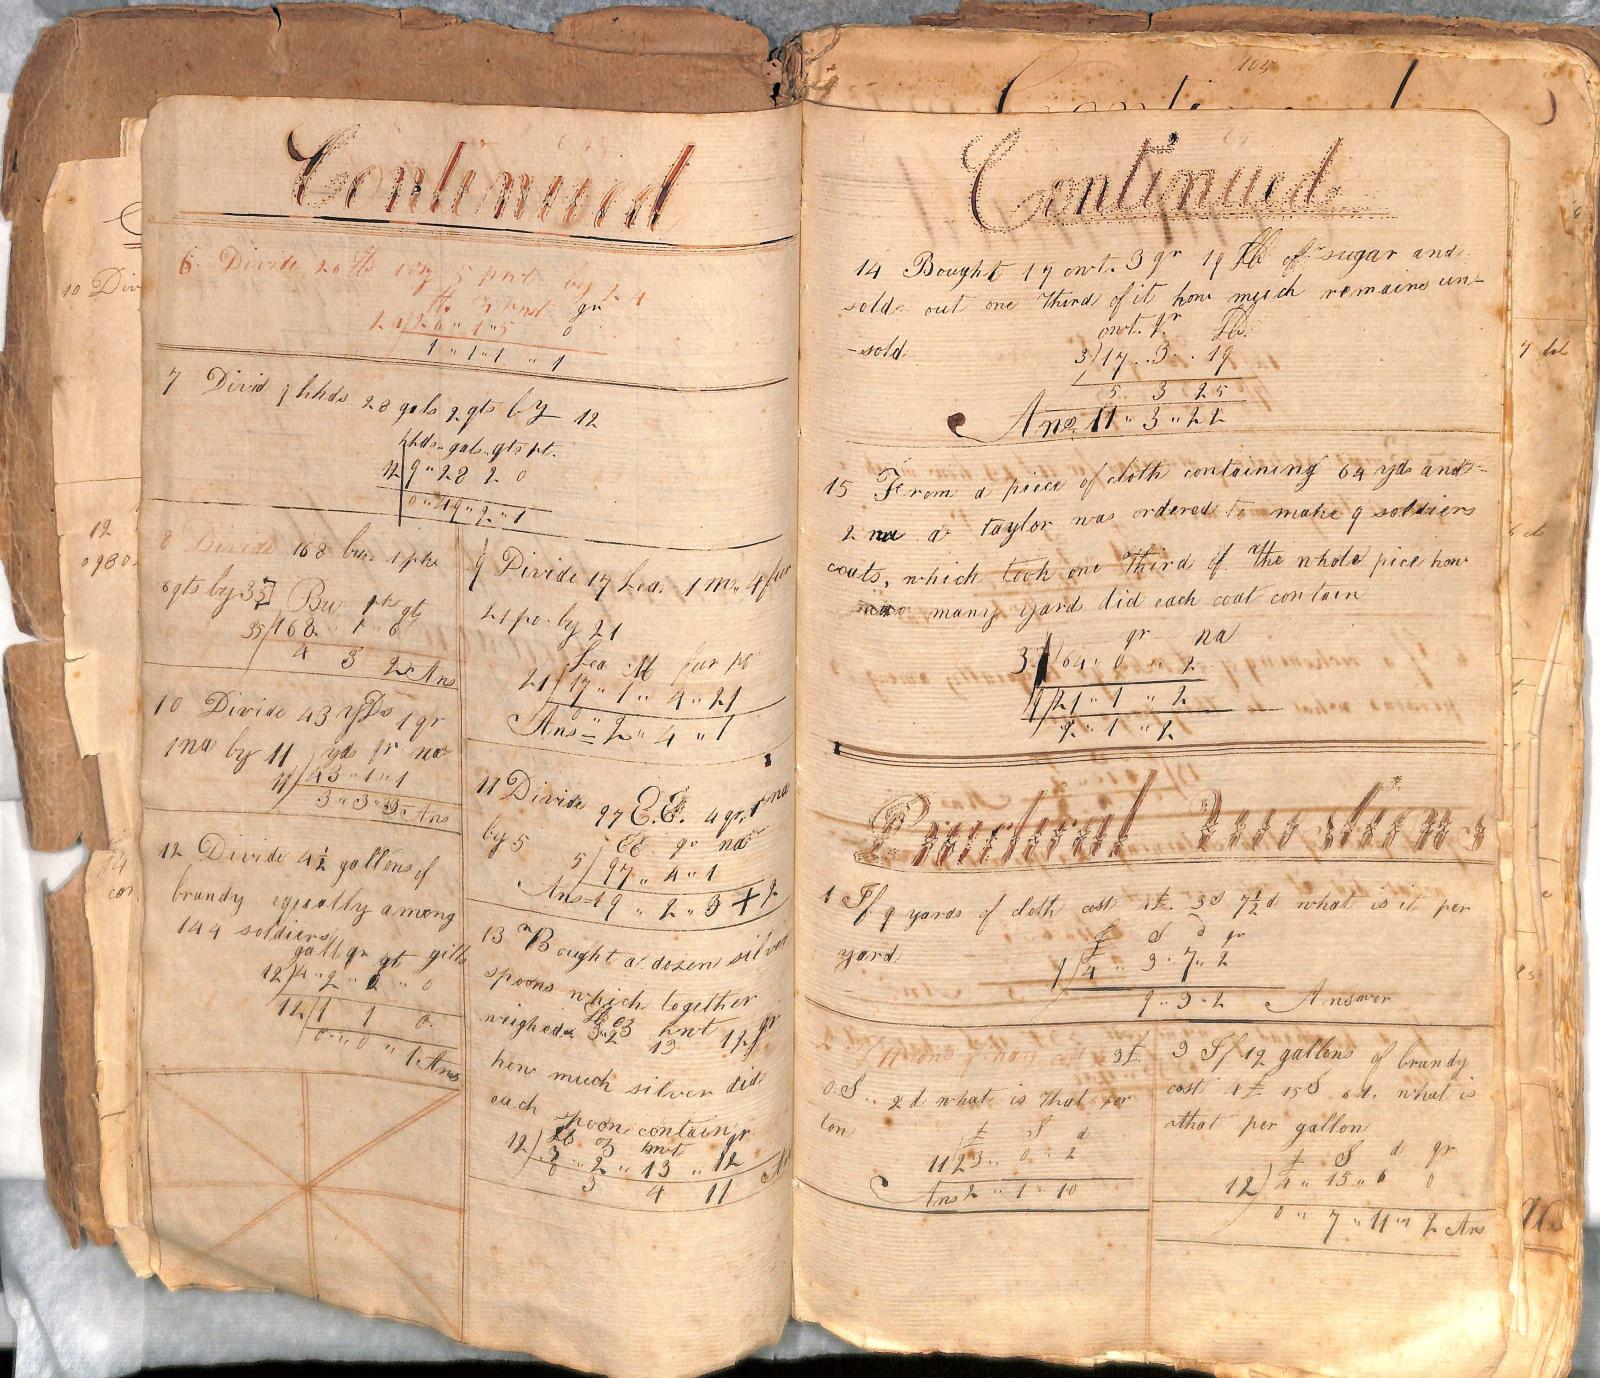 Continued
6 Divide 26 lb 1 oz 5 pwt by 24
lb oz pwt gr
24/26 " 1 " 5 0
1 " 1 " 1 " 1
7 Divid 9 hhds 28 gals 2 qts by 12
hhds. gals. qts pt.
12/9 " 28 2 0
0 " 49 " 2 " 1
8 Divide 168 bu. 1 pke
6 qts by 35
Bu pk qt
35/168 " 1 " 6
4 3 2 Ans
9 Divide 17 Lea. 1 m. 4 fur
21 po. by 21
Lea M fur po
21/17 " 1 " 4 " 21
Ans = 2 " 4 " 1
10 Divide 43 yds 1 qr
1 na by 11
yds qr na
11/43 " 1 " 1
3 " 3 " 3 Ans
11 Divide 97 E.E. 4 qr. 1 na
by 5
EE qr na
5/97 " 4 " 1
Ans = 19 " 2 " 3 + 2
12 Divide 4 1/2 gallens of
brandy equally among
144 soldiers
gall qr qt gills
12/4 " 2 " 0 " 0
12/1 1 0
0 " 0 " 1 Ans
13 Bought a dozen silver
spoons which together
weighed 3 lb 2 oz 13 pwt 12 gr
how much silver did
each spoon contain
lb oz pwt gr
12/3 " 2 " 13 " 12
0 3 4 11
Continued
14 Bought 17 cwt. 3 qr 19 lb of sugar and
sold out one third of it how much remains un-
-sold
cwt. qr lb.
3/17 .. 3 .. 19
5 3 25
Ans. 11 " 3 " 22
15 From a piece of cloth containing 64 yds and
2 na a taylor was ordered to make 9 soldiers
coats, which took one third of the whole pice how
many yards did each coat contain
qr na
3/64 " 0 " 2
9/21 " 1 " 2
2 " 1 " 2
Practical Questions
1 If 9 yards of cloth cost 4£. 3S 7 1/2 d what is it per
yard
£ S d qr
4 " 3 " 7 " 2
9 " 3 " 2 Answer
2 If 11 tons of hay cost 23£.
0 S .. 2d what is that per
ton
£ S d
11/23 .. 0 .. 2
Ans 2 " 1 " 10
3 If 12 gallens of brandy
cost 4£ 15S 6d. what is
that per gallon
£ S d qr
12/4 " 15 " 6 0
0 " 7 " 11 " 2 Ans
104
10 Div
12